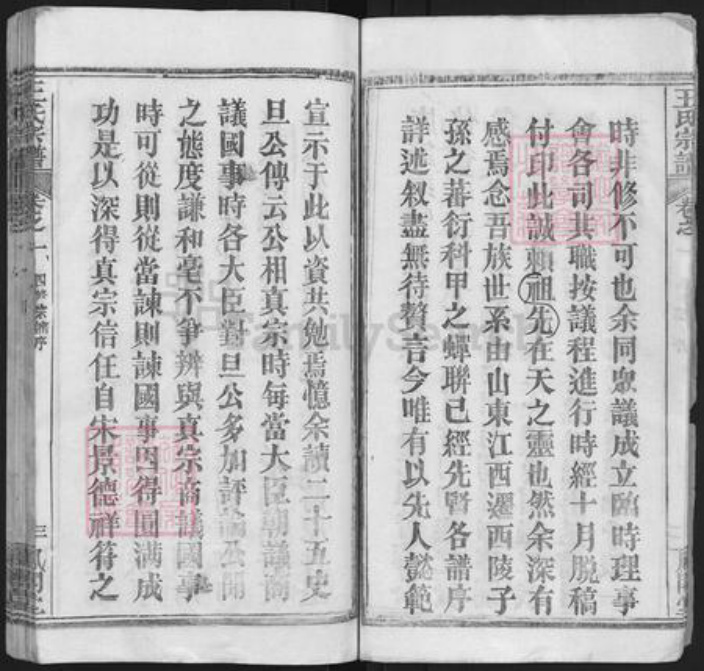 王氏宗譜
卷之
時非修不可也余同眾議成立臨時理事
會各司其職按議程進行時經十月脫稿
付印此誠賴祖先在天之靈也然余深有
感焉念吾族世系由山東江西遷西陵子
孫之蕃衍科甲之蟬聯已經先賢各譜序
詳述叙盡無待贅言今唯有以先人懿範
宣示于此以資共勉焉憶余讀二十五史
旦公傳云公相真宗時每當大臣朝議商
議國事時各大臣對旦公多加評論公閒
之態度謙和毫不爭辨與真宗商議國事
時可從則從當諫則諫國事因得圓滿成
功是以深得真宗信任自宋景德祥符之
王氏宗譜
卷之一
四修宗譜序
三
FamilySearch